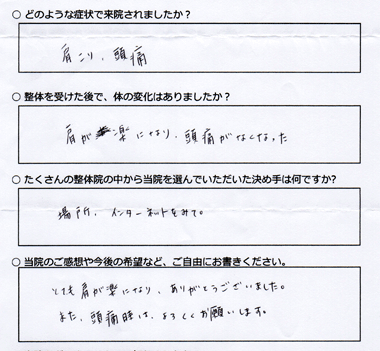 ○ どのような症状で来院されましたか？
肩こり、頭痛
○ 整体を受けた後で、体の変化はありましたか？
肩が楽になり、頭痛がなくなった
○ たくさんの整体院の中から当院を選んでいただいた決め手は何ですか?
場所、インターネットをみて。
○ 当院のご感想や今後の希望など、ご自由にお書きください。
とても肩が楽になり、ありがとうございました。
また、頭痛時は、よろしくお願いします。